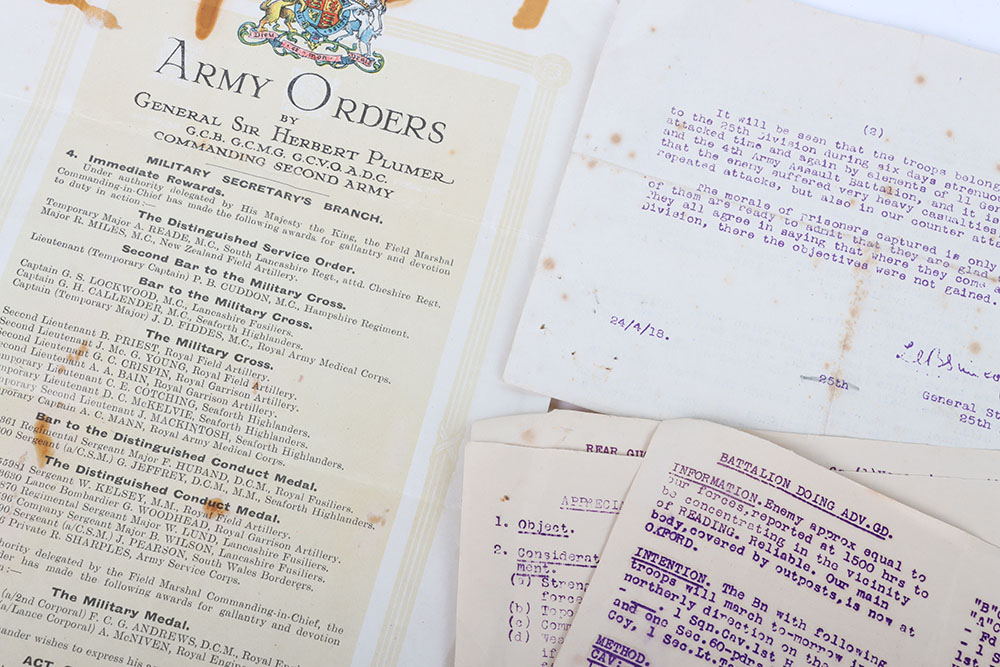 Dieu et mon Droit
ARMY ORDERS
BY
GENERAL SIR HERBERT PLUMER
G.C.B. G.C.M.G. G.C.V.O. A.D.C.
COMMANDING SECOND ARMY
MILITARY SECRETARY'S BRANCH.
4. Immediate Rewards.
Under authority delegated by His Majesty the King, the Field Marshal
Commanding-in-Chief has made the following awards for gallantry and devotion
to duty in action:—
The Distinguished Service Order.
Temporary Major A. READE, M.C., South Lancashire Regt., attd. Cheshire Regt.
Major R. MILES, M.C., New Zealand Field Artillery.
Second Bar to the Military Cross.
Lieutenant (Temporary Captain) P. B. CUDDON, M.C., Hampshire Regiment.
Bar to the Military Cross.
Captain G. S. LOCKWOOD, M.C., Lancashire Fusiliers.
Captain G. H. CALLENDER, M.C., Seaforth Highlanders.
Captain (Temporary Major) J. D. FIDDES, M.C., Royal Army Medical Corps.
The Military Cross.
Second Lieutenant B. PRIEST, Royal Field Artillery.
Second Lieutenant J. Mc. G. YOUNG, Royal Field Artillery.
Second Lieutenant G. C. CRISPIN, Royal Garrison Artillery.
Temporary Lieutenant A. A. BAIN, Royal Garrison Artillery.
Temporary Lieutenant C. E. COTCHING, Seaforth Highlanders.
Temporary Second Lieutenant D. C. McKELVIE, Seaforth Highlanders.
Second Lieutenant J. MACKINTOSH, Seaforth Highlanders.
Captain A. C. MANN, Royal Army Medical Corps.
Bar to the Distinguished Conduct Medal.
861 Regimental Sergeant Major F. HUBAND, D.C.M., Royal Fusiliers.
Sergeant (a/C.S.M.) G. JEFFREY, D.C.M., M.M., Seaforth Highlanders.
The Distinguished Conduct Medal.
55981 Sergeant W. KELSEY, M.M., Royal Field Artillery.
Lance Bombardier G. WOODHEAD, Royal Garrison Artillery.
Regimental Sergeant Major W. LUND, Lancashire Fusiliers.
Company Sergeant Major B. WILSON, Lancashire Fusiliers.
Sergeant (a/C.S.M.) J. PEARSON, South Wales Borderers.
Private R. SHARPLES, Army Service Corps.
authority delegated by the Field Marshal Commanding-in-Chief, the
has made the following awards for gallantry and devotion
The Military Medal.
(a/2nd Corporal) F. C. G. ANDREWS, D.C.M., Royal
(a/Lance Corporal) A. McNIVEN, Royal Engineers
wishes to express his
(2)
It will be seen that the troops
to the 25th Division during six days
attacked time and again by elements of 11
and the 4th Army Assault Battalion, and it is
that the enemy suffered very heavy casualties
repeated attacks, but also in our counter
The morale of prisoners captured is only
of them are ready to admit that they are glad
They all agree in saying that where they come
Division, there the objectives were not gained.
24/4/18.
25th
General
25th
REAR
1. Object.
2.
(a)
(b)
(c)
(d)
BATTALION DOING ADV.GD.
INFORMATION. Enemy approx equal to
our forces, reported at 1500 hrs to
be concentrating in the vicinity
of READING. Reliable. Our main
body, covered by outposts, is now at
OXFORD.
INTENTION. The Bn with following
troops will march to-morrow in
northerly direction on the
1 Sqn. Cav.
and one Sec. 60-pdrs
Coy, 1 Sec. Lt.
METHOD.
CAV:
"B"
"A"